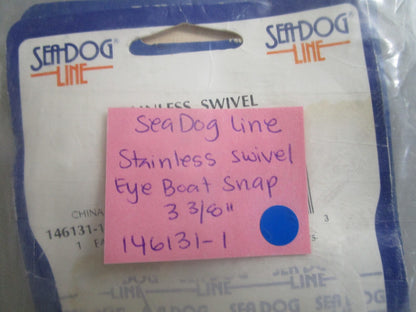 SEA-DOG® SEA-DOG®
LINE LINE
STAINLESS SWIVEL
Sea Dog Line
Stainless swivel
Eye Boat Snap
3 3/8"
146131-1
CHINA
146131-1
3
1
SEA-DOG SEA-DOG
LINE LINE LINE